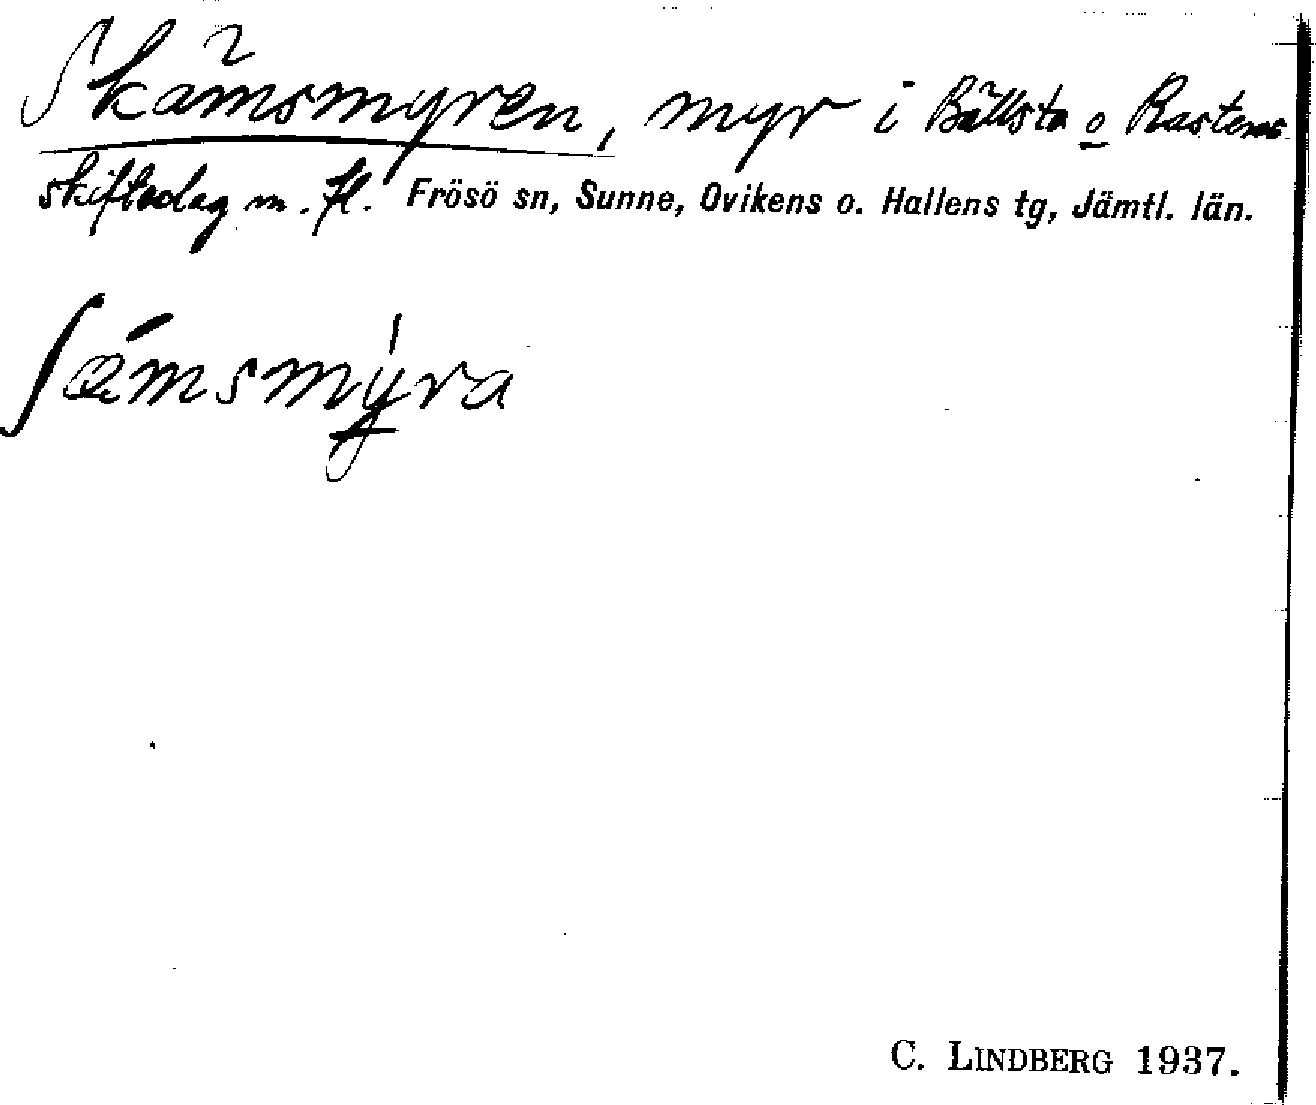 Skämsmyren, myr i Bällsta o Rastens
skifteslag m. fl. Frösö sn, Sunne, Ovikens o. Hallens tg, Jämtl. län.
ʃæ̀msmy̌ra
C. LINDBERG 1937.